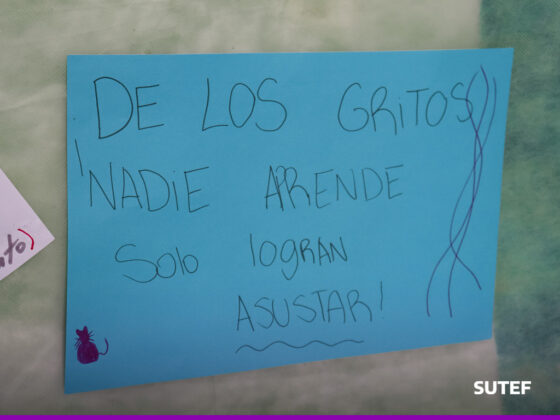 DE LOS GRITOS
NADIE APRENDE
Solo logran
ASUSTAR!
SUTEF